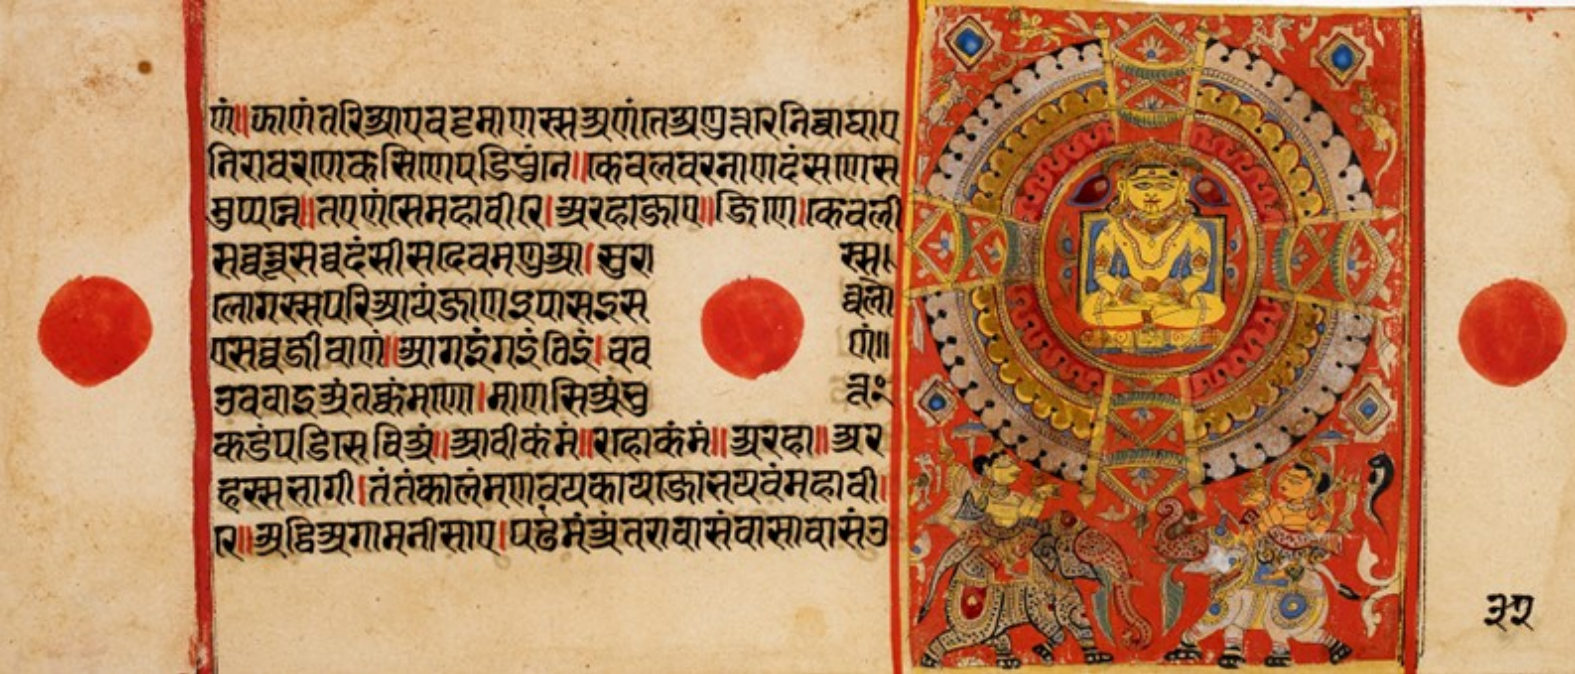 णं॥झाणंतरिआएवट्टमाणस्सअणंतेअणुत्तरेनिव्वाघाए
निरावरणेकसिणेपडिपुंने॥केवलवरनाणदंसणेस
मुप्पन्ने॥तएणंसेमहावीरे।अरहाजाए॥जिणे।केवली
सव्वन्नूसव्वदंसीसदेवमणुआ।सुरा स्स।
लोगस्सपरिआयंजाणइपासइस व्वलो
एसव्वजीवाणं॥आगइंगइंठिइं।चव णं॥
उववाइअंतक्कंमणो।माणसिअंभु त्तं
कडंपडिसेविअं॥आवीकंमं॥रहोकंमं॥अरहा॥अर
हस्सभागी।तंतंकालंमणवयकाय महावी।
रे॥अट्ठिअगामनीसाए।पढमंअंतरावासंवासावासंउ